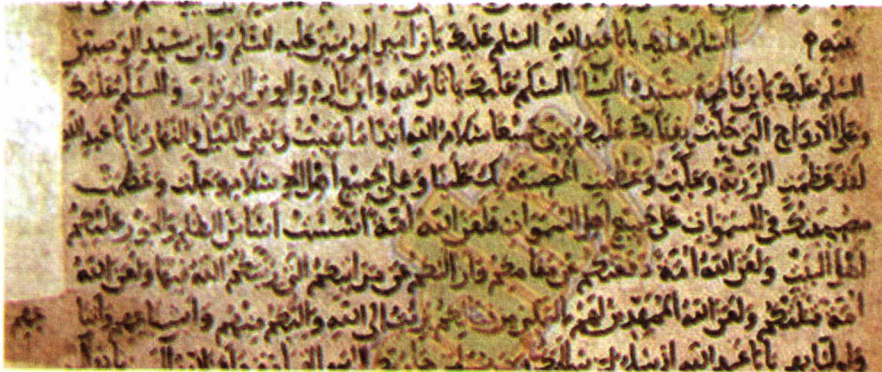 السلم عليك يا با عبد الله السلم عليك يا بن امير المومنين عليه السلم وابن سيد الوصيين
السلم عليك يا بن فاطمة سيدة النسآء السلم عليك يا ثار الله وابن ثاره والوتر الموتور والسلم عليك
وعلى الارواح التي حلت بفنائك عليكم مني جميعا سلام الله ابدا ما بقيت وبقي الليل والنهار يا با عبد الله
لقد عظمت الرزية وجلت وعظمت المصيبة بك علينا وعلى جميع اهل الاسلام وجلت وعظمت
مصيبتك في السموات على جميع اهل السموات فلعن الله امة اسست اساس الظلم والجور عليكم
اهل البيت ولعن الله امة دفعتكم عن مقامكم وازالتكم عن مراتبكم التي رتبكم الله فيها ولعن الله
امة قتلتكم ولعن الله الممهدين لهم بالتمكين من قتالكم برئت الى الله واليكم منهم واشياعهم واتبا
يا با عبد الله